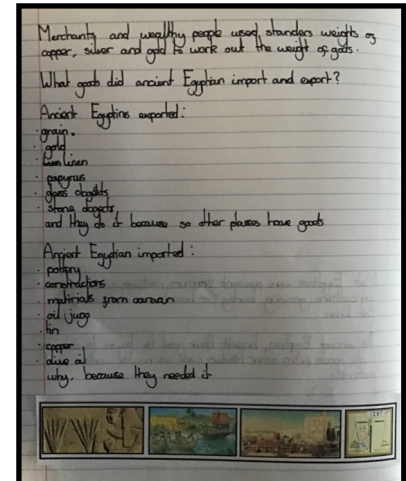 Merchants and wealthy people used standers weights of
copper, silver and gold to work out the weight of gods.
What gods did ancient Egyptian import and export?
Ancient Egyptins exported:
· grain.
· gold
· linen
· papyrus
· glass obgekts
· stone obgects
and they do it because so other plases have goods
Angient Egyptian imported:
· pottory
· constractors
· matirials from
· oil jugs
· tin
· copper
· olive oil
why. because they needed it